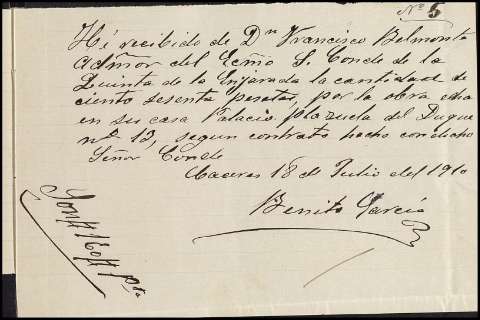 Nº 5
Hé recibido de Dn Francisco Belmonte
Admor del Exmo S. Conde de la
Quinta de la Enjarada la cantidad de
ciento sesenta pesetas, por la obra echa
en su casa Palacio, plazuela del Duque
nº 13, segun contrato hecho con dicho
Señor Conde
Caceres 18 de Julio del 1910
Benito Garcia
Son # 160 # pts